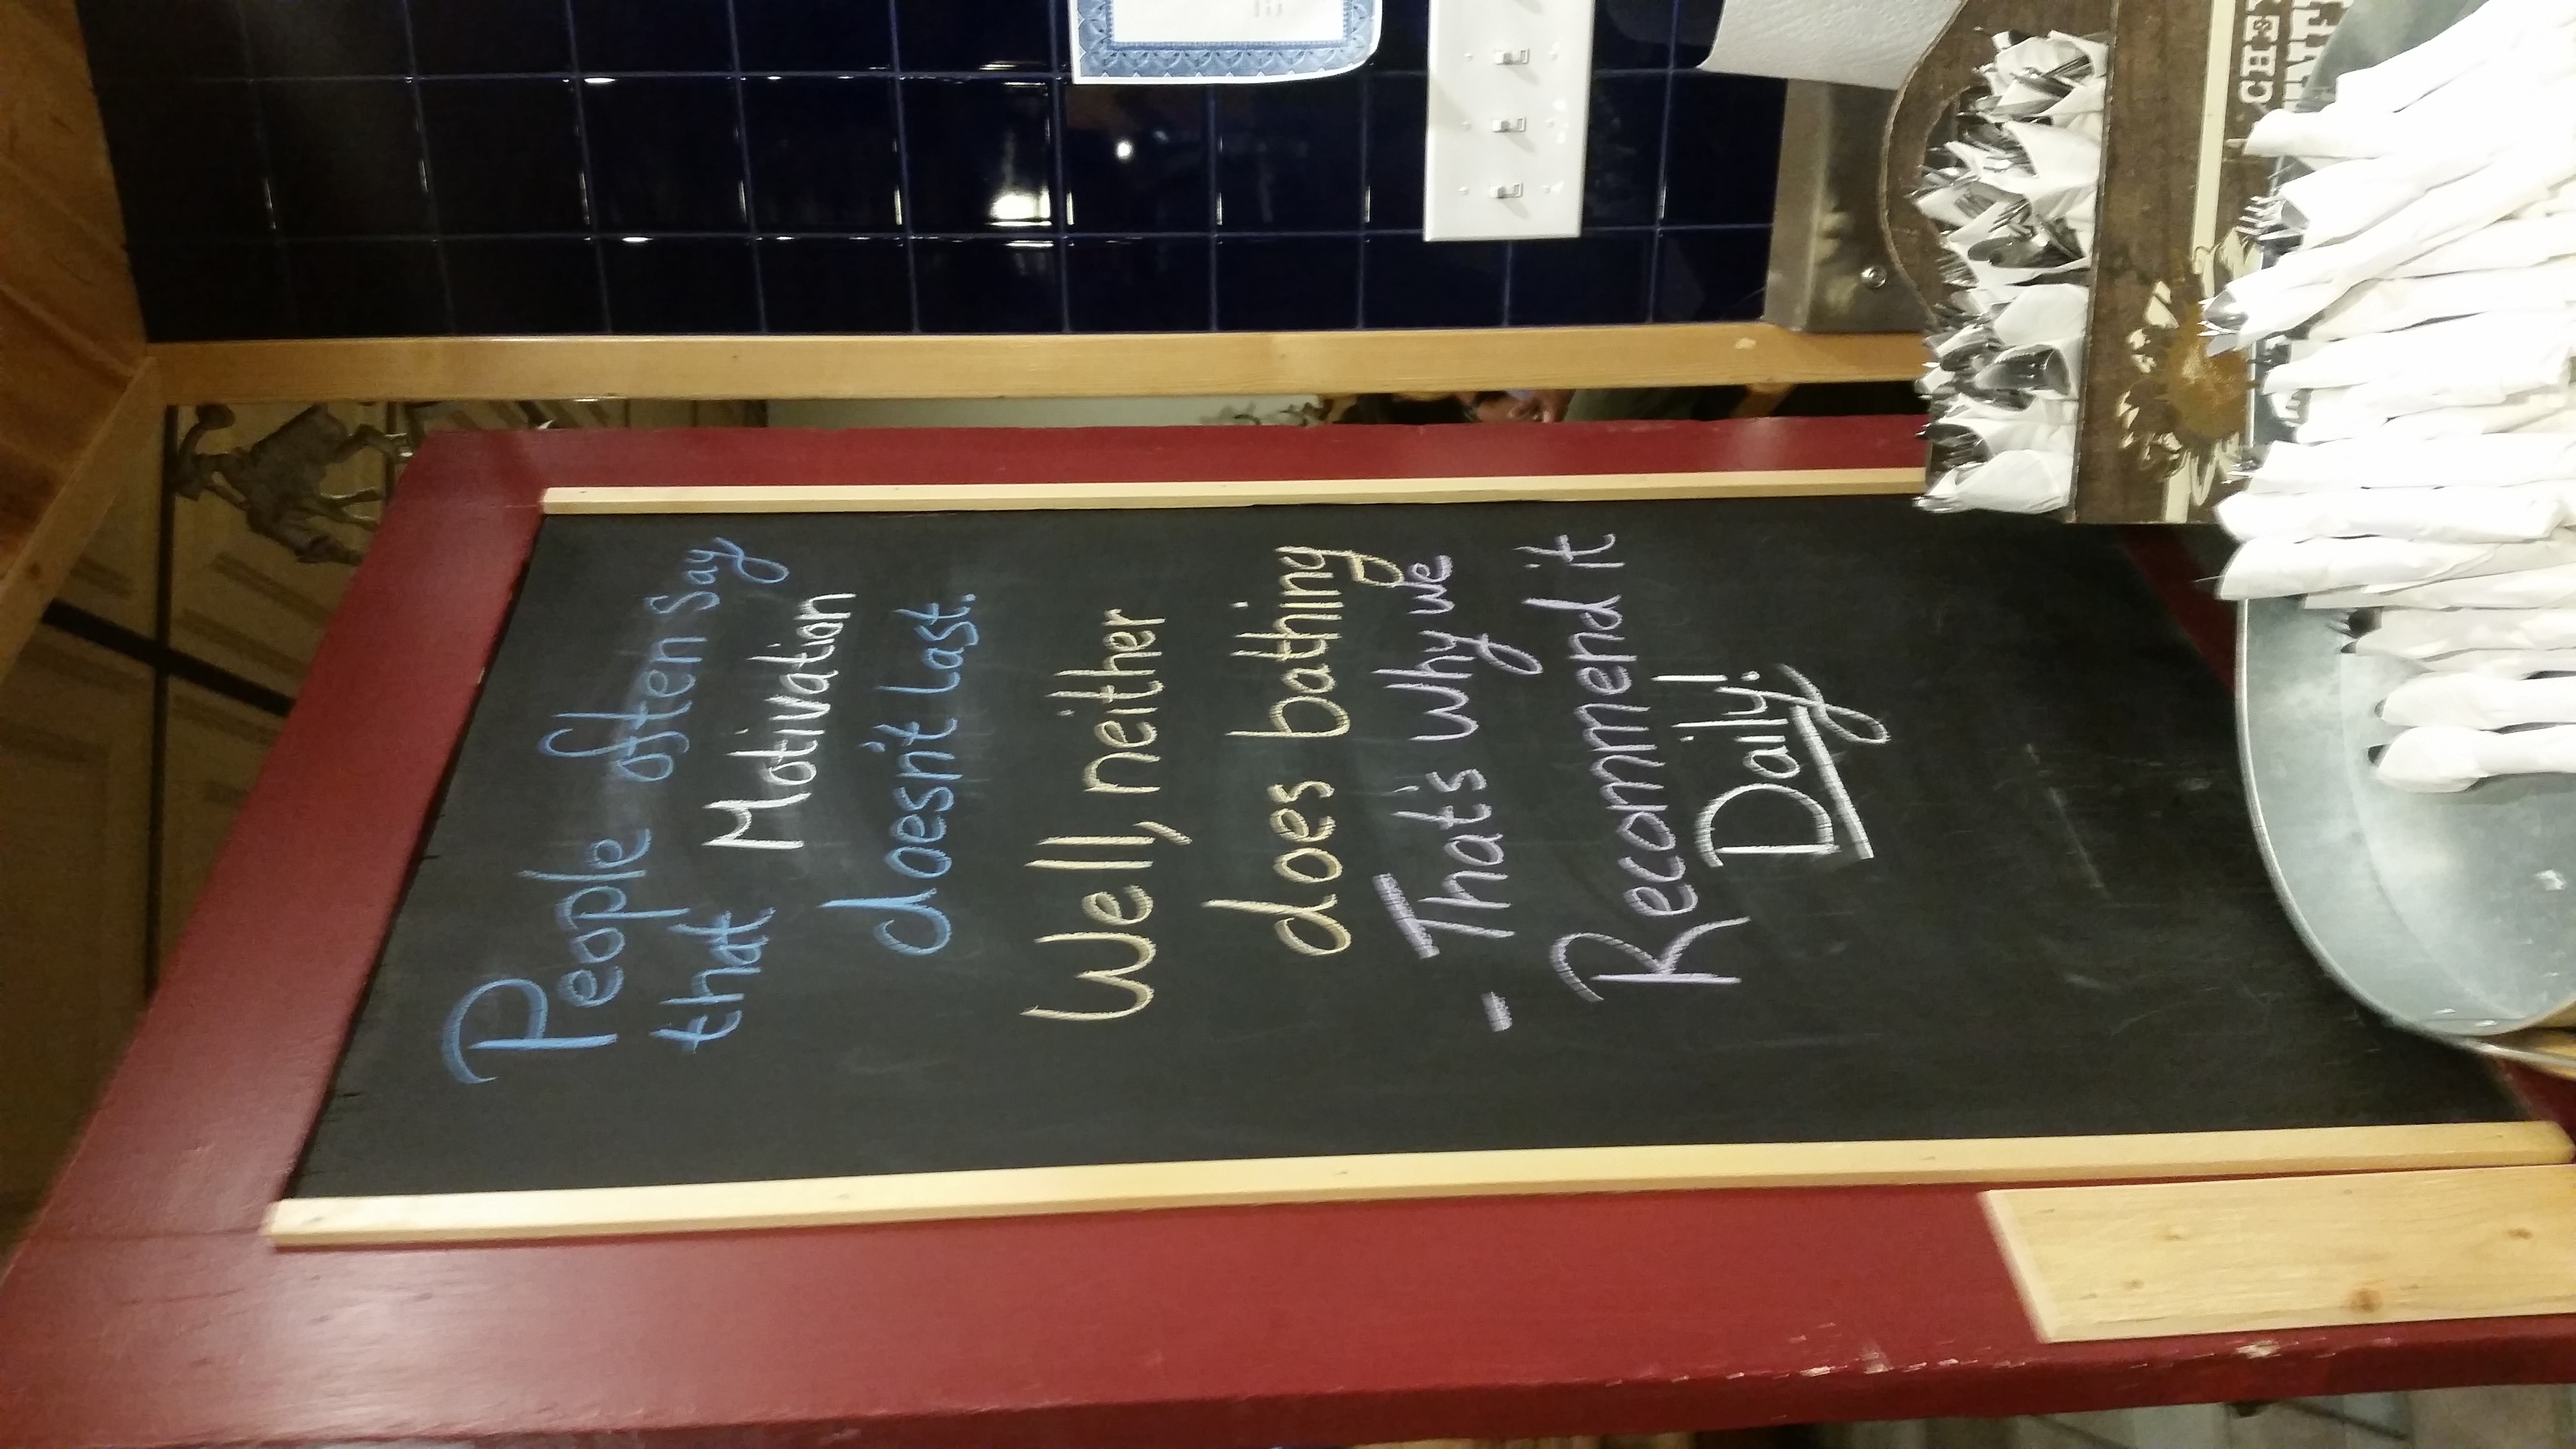 People often Say
that Motivation
doesn't Last.
Well, neither
does bathing
- That's Why we
Recommend it
Daily!